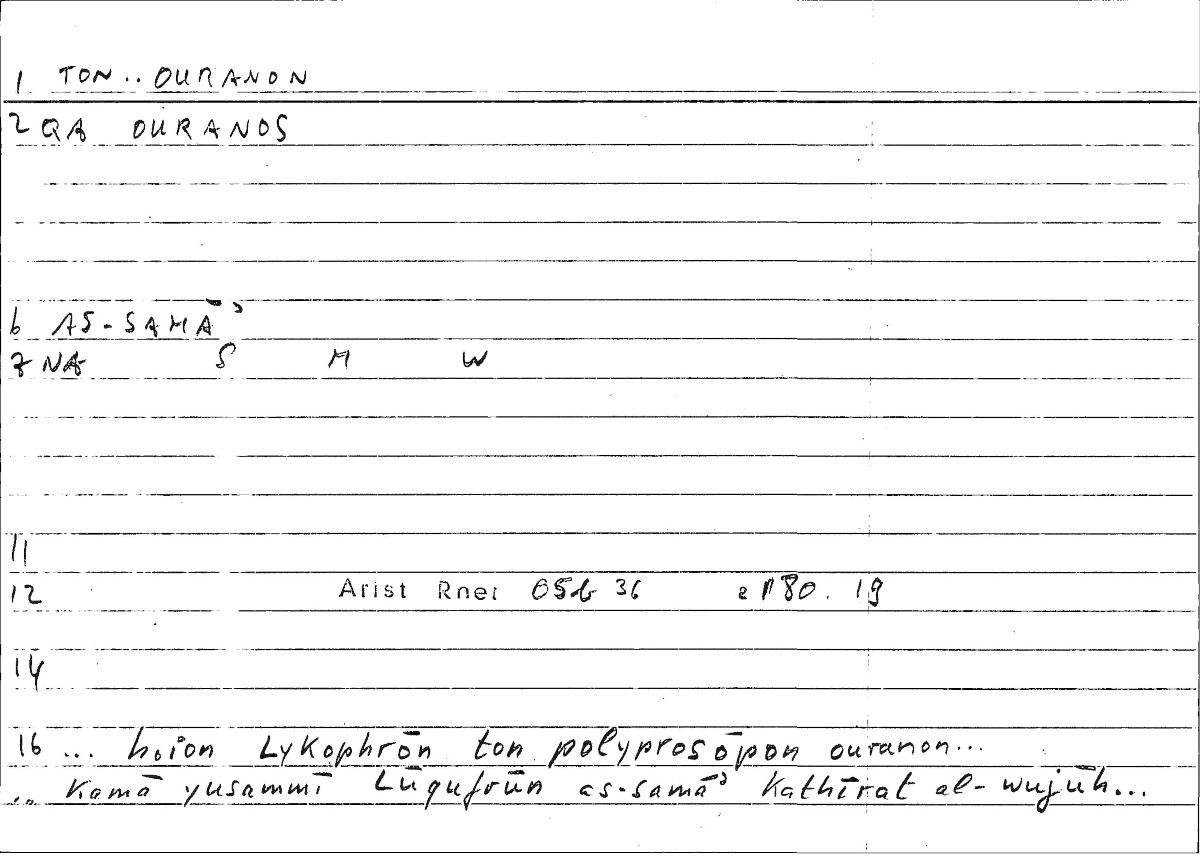 1 TON .. OURANON
2 QA OURANOS
6 AS-SAMĀʾ
7 NA S M W
11
12 Arist Rhet 05b 36 a 180. 19
14
16 ... hoion Lykophrōn ton polyprosōpon ouranon...
... Kamā yusammī Lūqufrūn as-samāʾ Kathīrat al-wujūh...